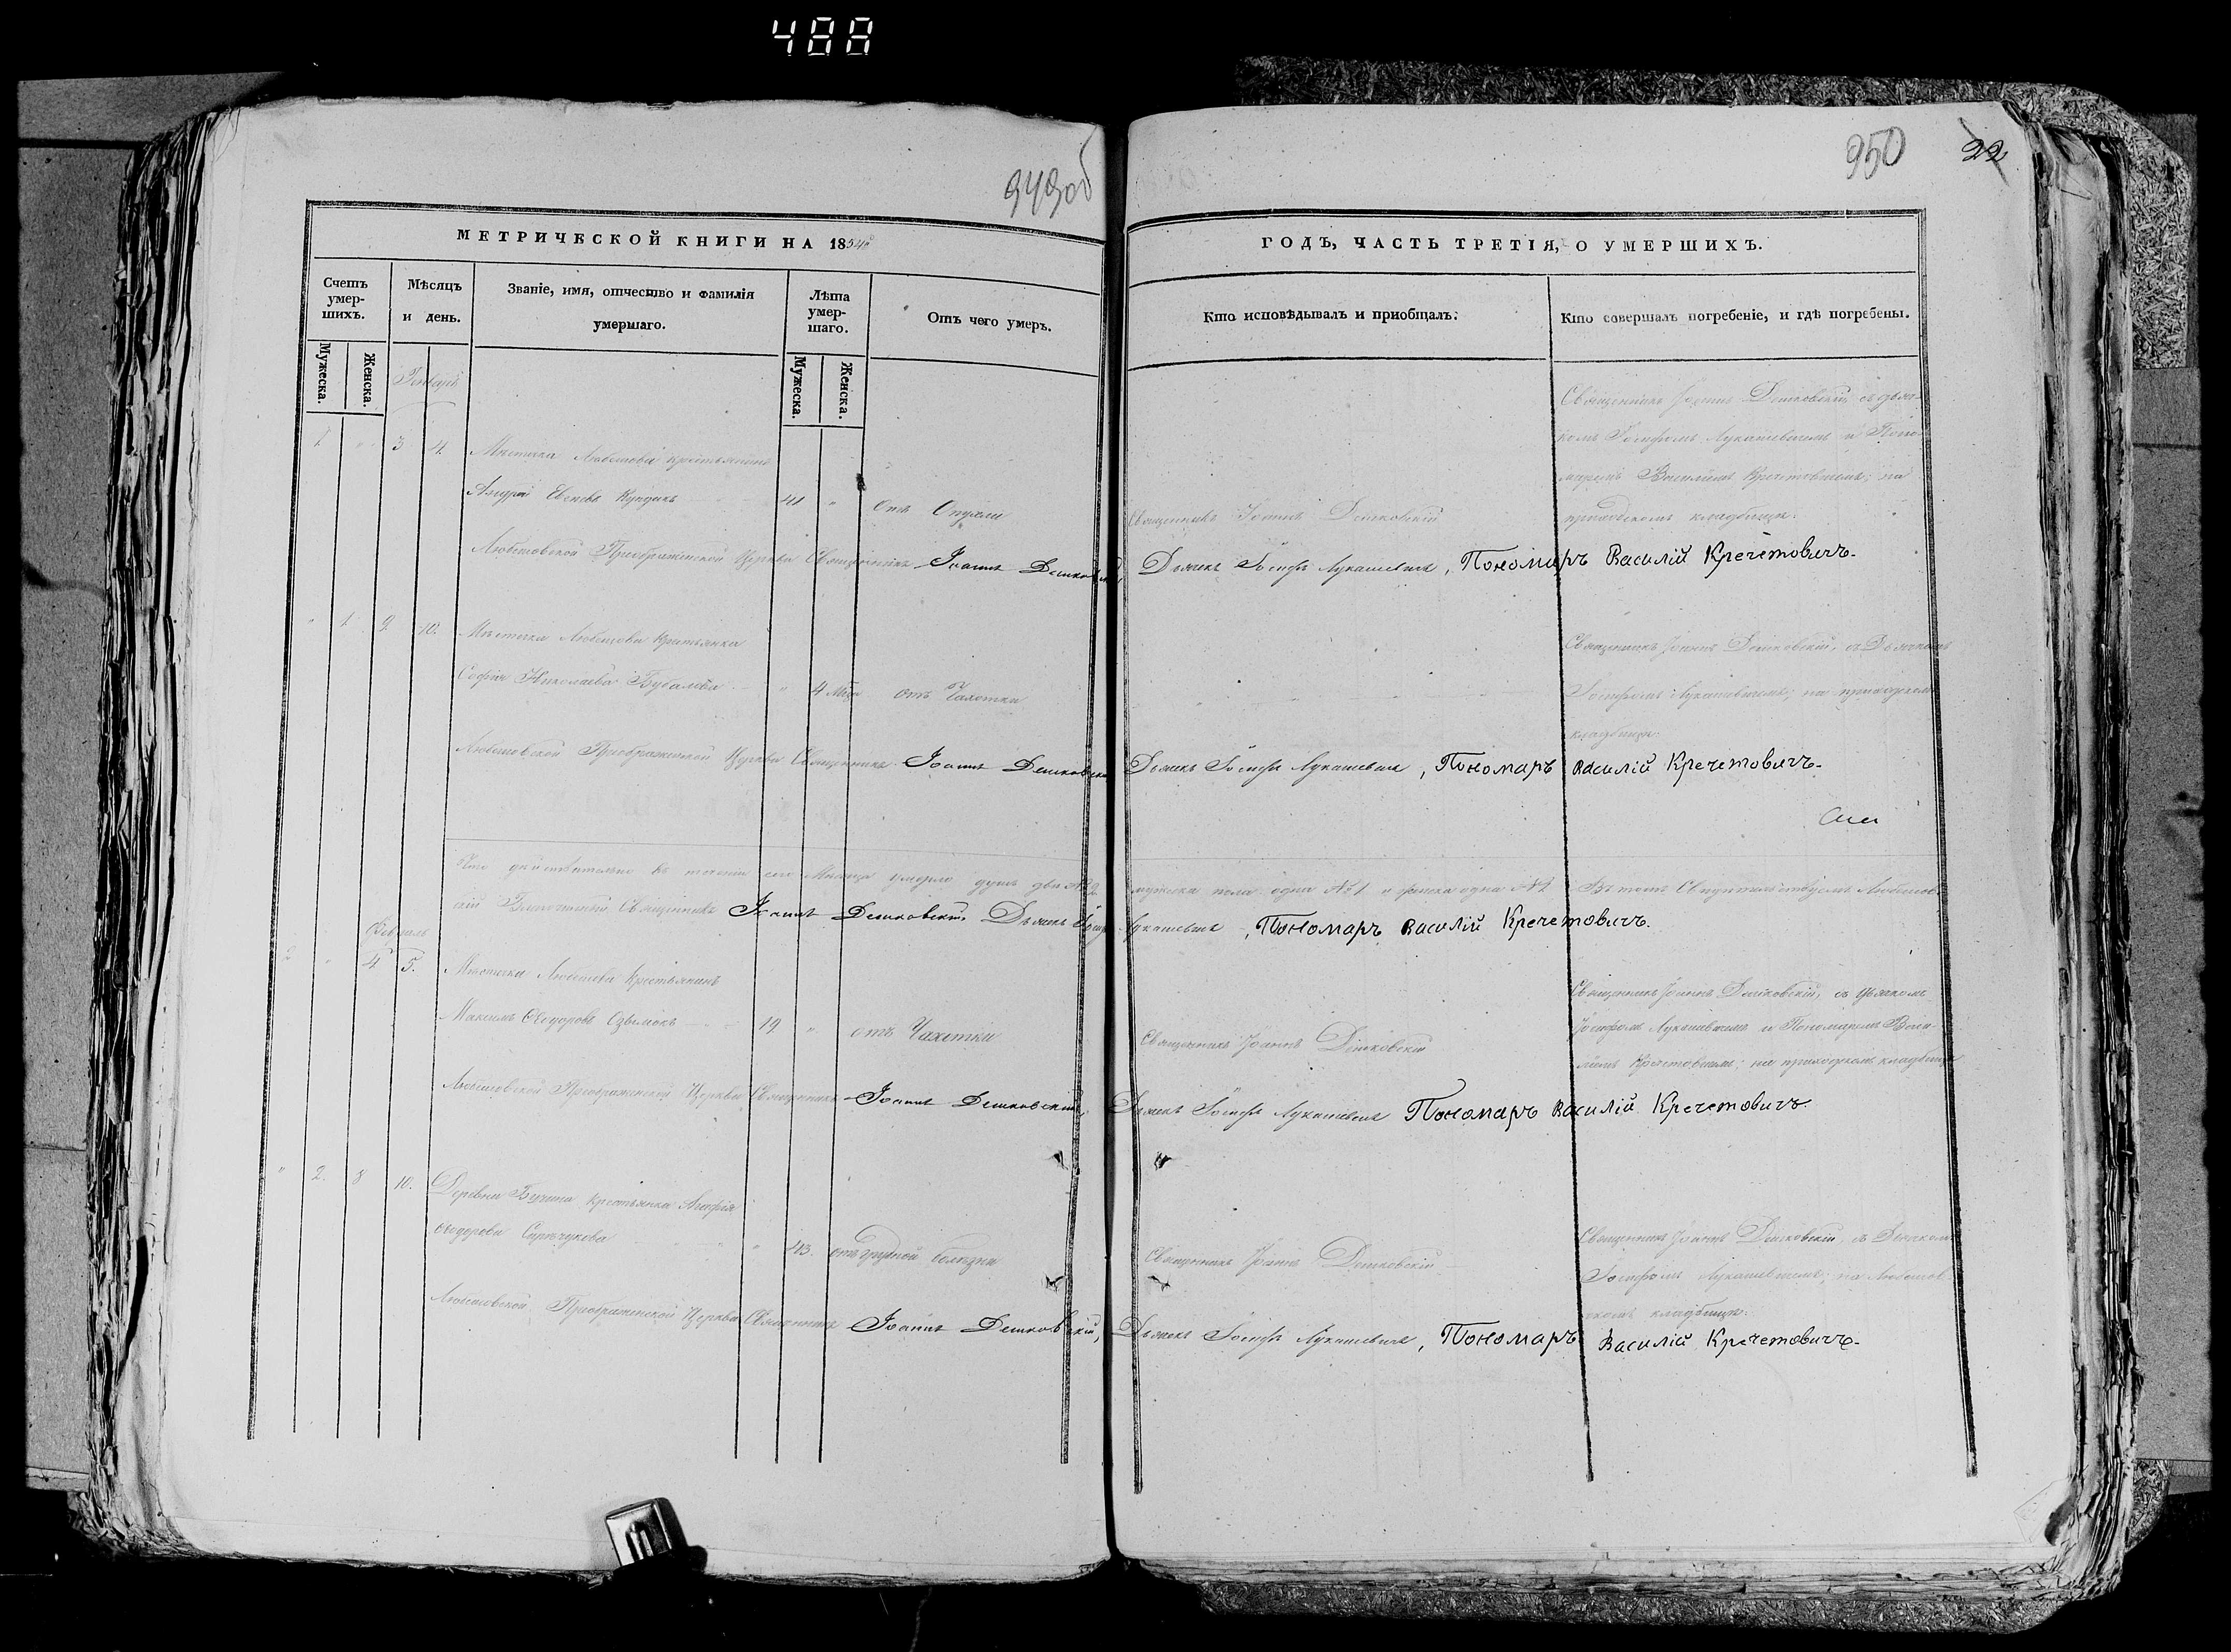 488
949об
950
22
МЕТРИЧЕСКОЙ КНИГИ НА 1854й
ГОДЪ, ЧАСТЬ ТРЕТІЯ, О УМЕРШИХЪ.
Счетъ умер-шихъ.
Мѣсяцъ и день.
Званіе, имя, отчество и фамилія умершаго.
Лѣта умер-шаго.
Отъ чего умеръ.
Кто исповѣдывалъ и пріобщалъ.
Кто совершалъ погребеніе, и гдѣ погребены.
Мужеска.
Женска.
Мужеска.
Женска.
Генварь
Священникъ Іоаннъ Дешковскій, съ дьяч-
комъ Іосифомъ Лукашевичемъ и Поно-
1 " 3 4 Мѣстечка Любешова крестьянинъ
маремъ Василіемъ Кречетовичемъ; на
Андрей 41 " Отъ Опухли Священникъ Іоаннъ Дешковскій
приходскомъ кладбищѣ.
Любешовской Преображенской Церкви Священникъ Іоаннъ Дешковскій, Дьячекъ Іосифъ Лукашевичъ, Пономаръ Василій Кречетовичъ.
" 1 9 10. Мѣстечка Любешова крестьянка
Священникъ Іоаннъ Дешковскій, съ Дьячкомъ
Софія Николаева " 4 отъ Чахотки
Іосифомъ Лукашевичемъ; на приходскомъ
кладбищѣ.
Любешовской Преображенской Церкви Священникъ Іоаннъ Дешковскій Дьячекъ Іосифъ Лукашевичъ, Пономаръ Василій Кречетовичъ.
Что дѣйствительно въ теченіи сего Мѣсяца умерло душъ двѣ №2 мужеска пола одна №1 и женска одна №1 Въ томъ Свидѣтельствуемъ Любешов-
скій Священникъ Іоаннъ Дешковскій Дьячекъ Іосифъ Лукашевичъ, Пономаръ Василій Кречетовичъ.
Февраль
2 " 4 5. Мѣстечка Любешова Крестьянинъ
Священникъ Іоаннъ Дешковскій, съ дьячкомъ
Максимъ Ѳеодоровъ 19 " отъ Чахотки Священникъ Іоаннъ Дешковскій
Іосифомъ Лукашевичемъ и Пономаремъ Васи-
ліемъ Кречетовичемъ; на приходскомъ кладбищѣ
Любешовской Преображенской Церкви Священникъ Іоаннъ Дешковскій, Дьячекъ Іосифъ Лукашевичъ Пономаръ Василій Кречетовичъ.
" 2. 8 10. Деревни крестьянка Агафія
Ѳеодорова " 43. отъ грудной болѣзни Священникъ Іоаннъ Дешковскій
Священникъ Іоаннъ Дешковскій, съ Дьячкомъ
Іосифомъ Лукашевичемъ; на Любешов-
скомъ кладбищѣ.
Любешовской Преображенской Церкви Священникъ Іоаннъ Дешковскій, Дьячекъ Іосифъ Лукашевичъ, Пономаръ Василій Кречетовичъ.